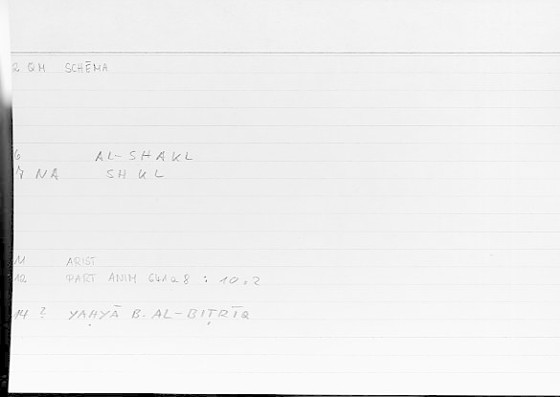 2 QM SCHĒMA
6 AL-SHAKL
7 NA SHKL
11 ARIST
12 PART ANIM 641a8 : 10.2
14 ? YAḤYĀ B. AL-BIṬRĪQ